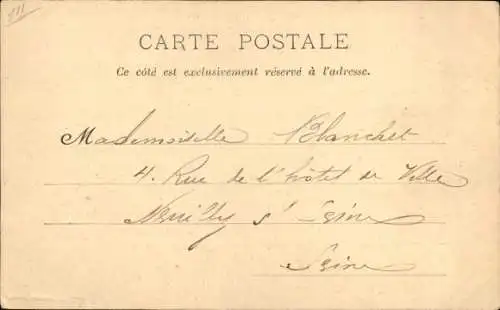 111
CARTE POSTALE
Ce côté est exclusivement réservé à l'adresse.
Mademoiselle Blanchet
4. Rue de l'hôtel de Ville
Neuilly s/ Seine
Seine